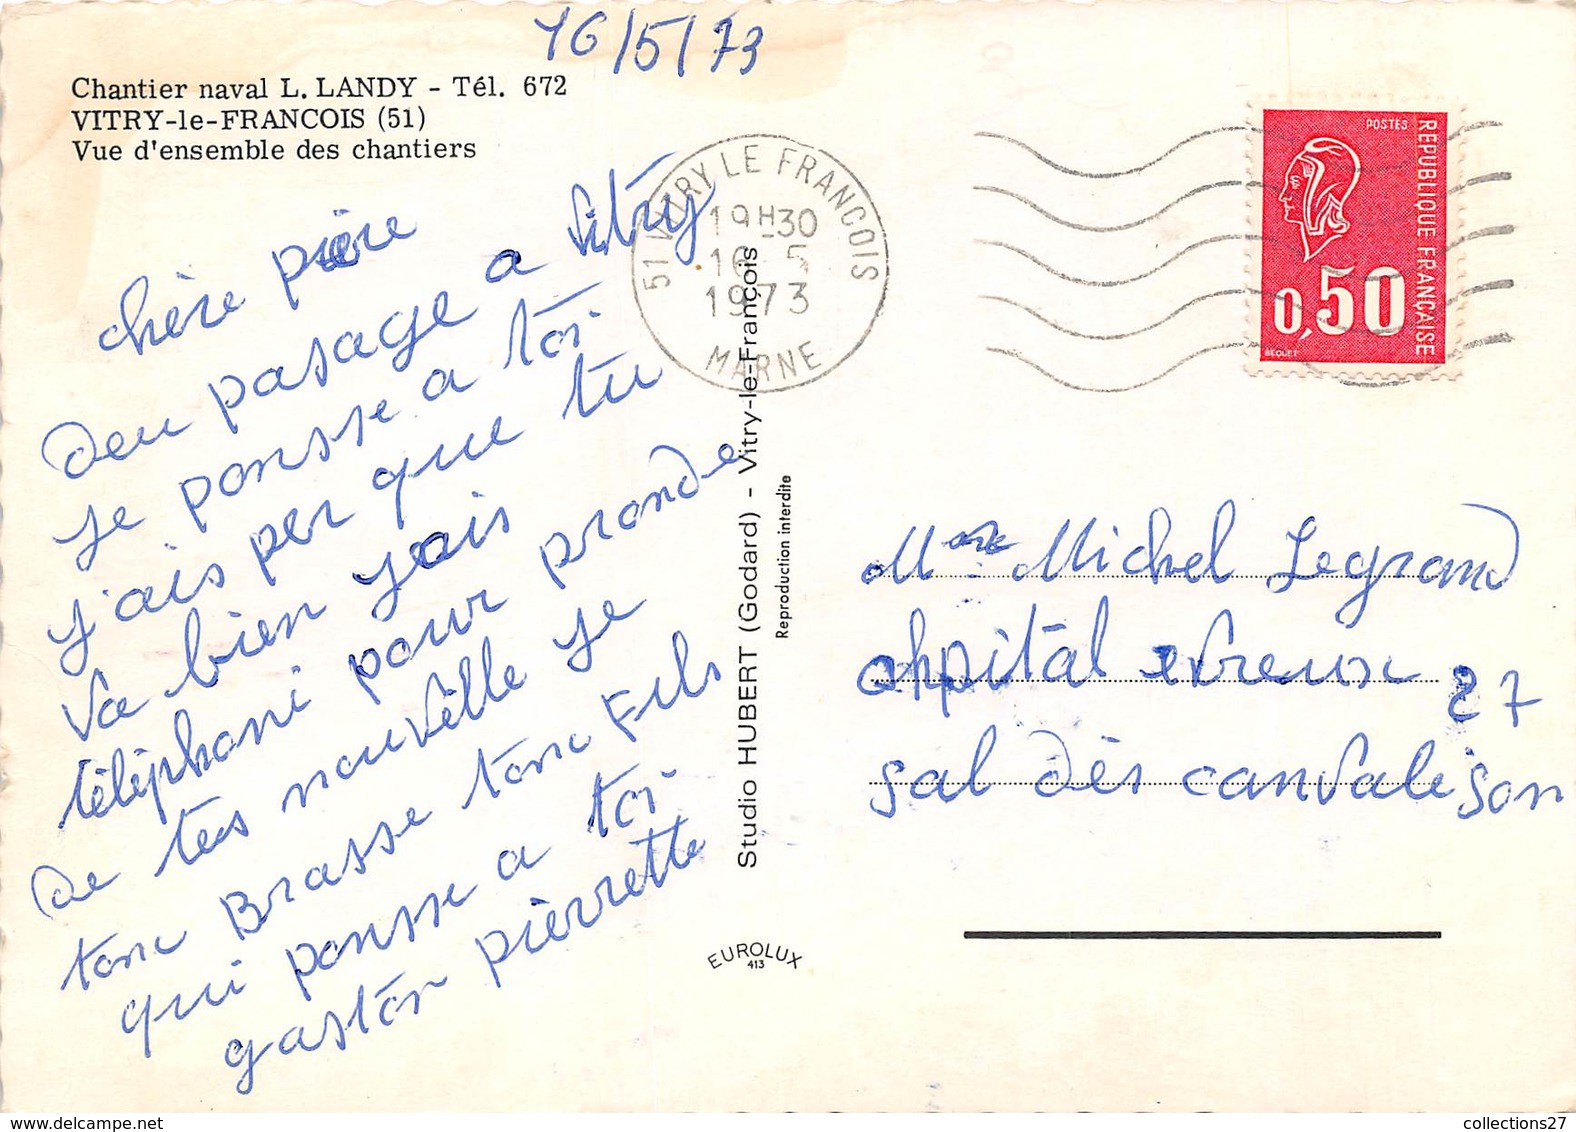 16/5/73
Chantier naval L. LANDY - Tél. 672
VITRY-le-FRANCOIS (51)
Vue d'ensemble des chantiers
chère père
deu pasage a Vitry
je pensse a toi
j'ais per que tu
va bien j'ais
téléphoni pour prande
de tes nouvelle je
tonc Brasse tonc Fils
qui pansse a toi
gaston pièrrette
51 VITRY LE FRANCOIS
19H30
16 5
1973
MARNE
Studio HUBERT (Godard) - Vitry-le-François
Reproduction interdite
EUROLUX
413
POSTES
REPUBLIQUE FRANÇAISE
0,50
BEQUET
Michel Legrand
ohpital evreux 27
sal dès canvale son
collections27